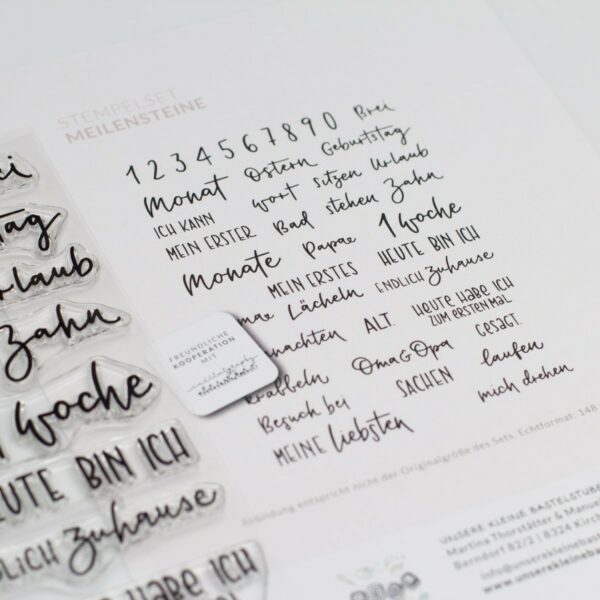 STEMPELSET
MEILENSTEINE
1 2 3 4 5 6 7 8 9 0 Brei
Monat Ostern Geburtstag
ICH KANN wort sitzen Urlaub
MEIN ERSTER Bad stehen Zahn
Monate Papa 1 Woche
MEIN ERSTES HEUTE BIN ICH
Lächeln ENDLICH zuhause
ALT. HEUTE HABE ICH
ZUM ERSTEN MAL
Oma & Opa GESAGT.
Besuch bei SACHEN laufen
MEINE liebsten mich drehen
FREUNDLICHE
KOOPERATION
MIT
Abbildung entspricht nicht der Originalgröße des Sets. Echtformat: 148
UNSERE KLEINE BASTELSTUBE
Martina Thorstätter & Manue
Berndorf 82/2 | 8324 Kirch
info@unsereklein
www.unsereklein
ei
tag
rlaub
Zahn
Woche
EUTE BIN ICH
DLICH zuhause
HABE ICH